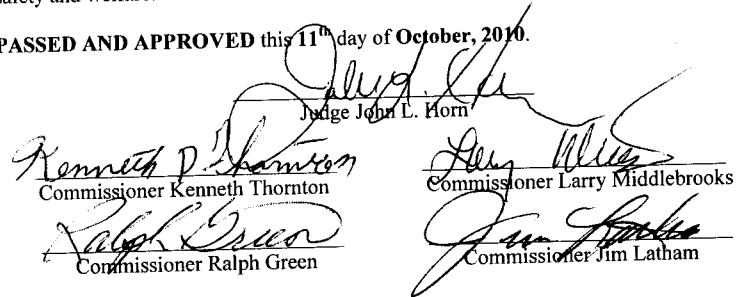 PASSED AND APPROVED this 11th day of October, 2010.
Judge John L. Horn
Kenneth P Thornton
Commissioner Kenneth Thornton
Commissioner Larry Middlebrooks
Ralph Green
Commissioner Ralph Green
Jim Latham
Commissioner Jim Latham